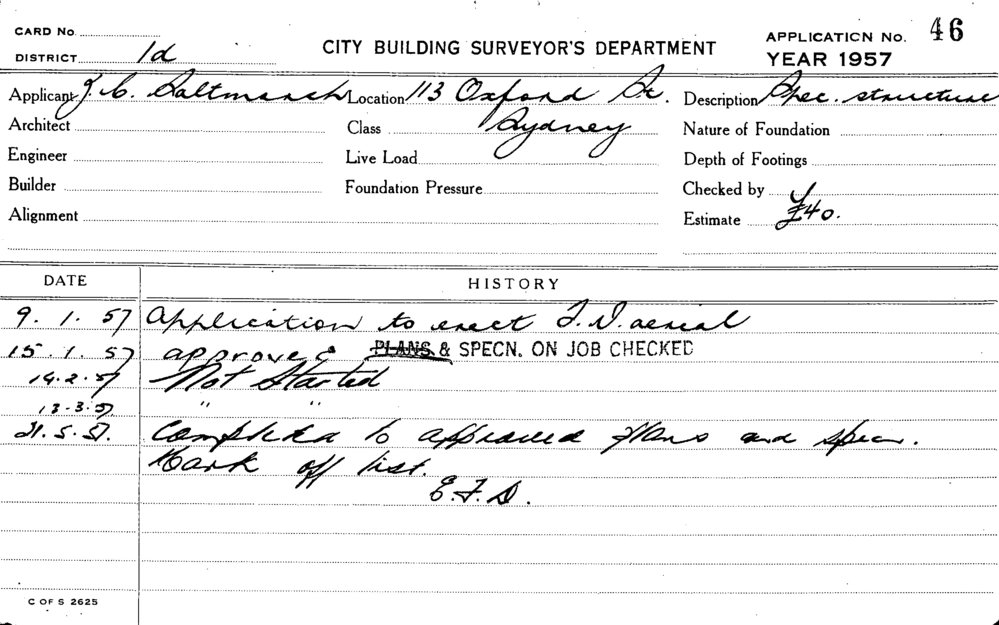 CARD No.
DISTRICT 1d
CITY BUILDING SURVEYOR'S DEPARTMENT
APPLICATION No. 46
YEAR 1957
Applicant J. C. Saltmarsh Location 113 Oxford St. Description Spec. structure
Architect Class Sydney Nature of Foundation
Engineer Live Load Depth of Footings
Builder Foundation Pressure Checked by
Alignment Estimate £40.
DATE HISTORY
9. 1. 57 Application to erect T.V. aerial
15. 1. 57 approved PLANS & SPECN. ON JOB CHECKED
14.2.57 Not Started
13.3.57 " "
21.5.57. Completed to approved plans and specn.
Mark off list.
E.F.S.
C OF S 2625